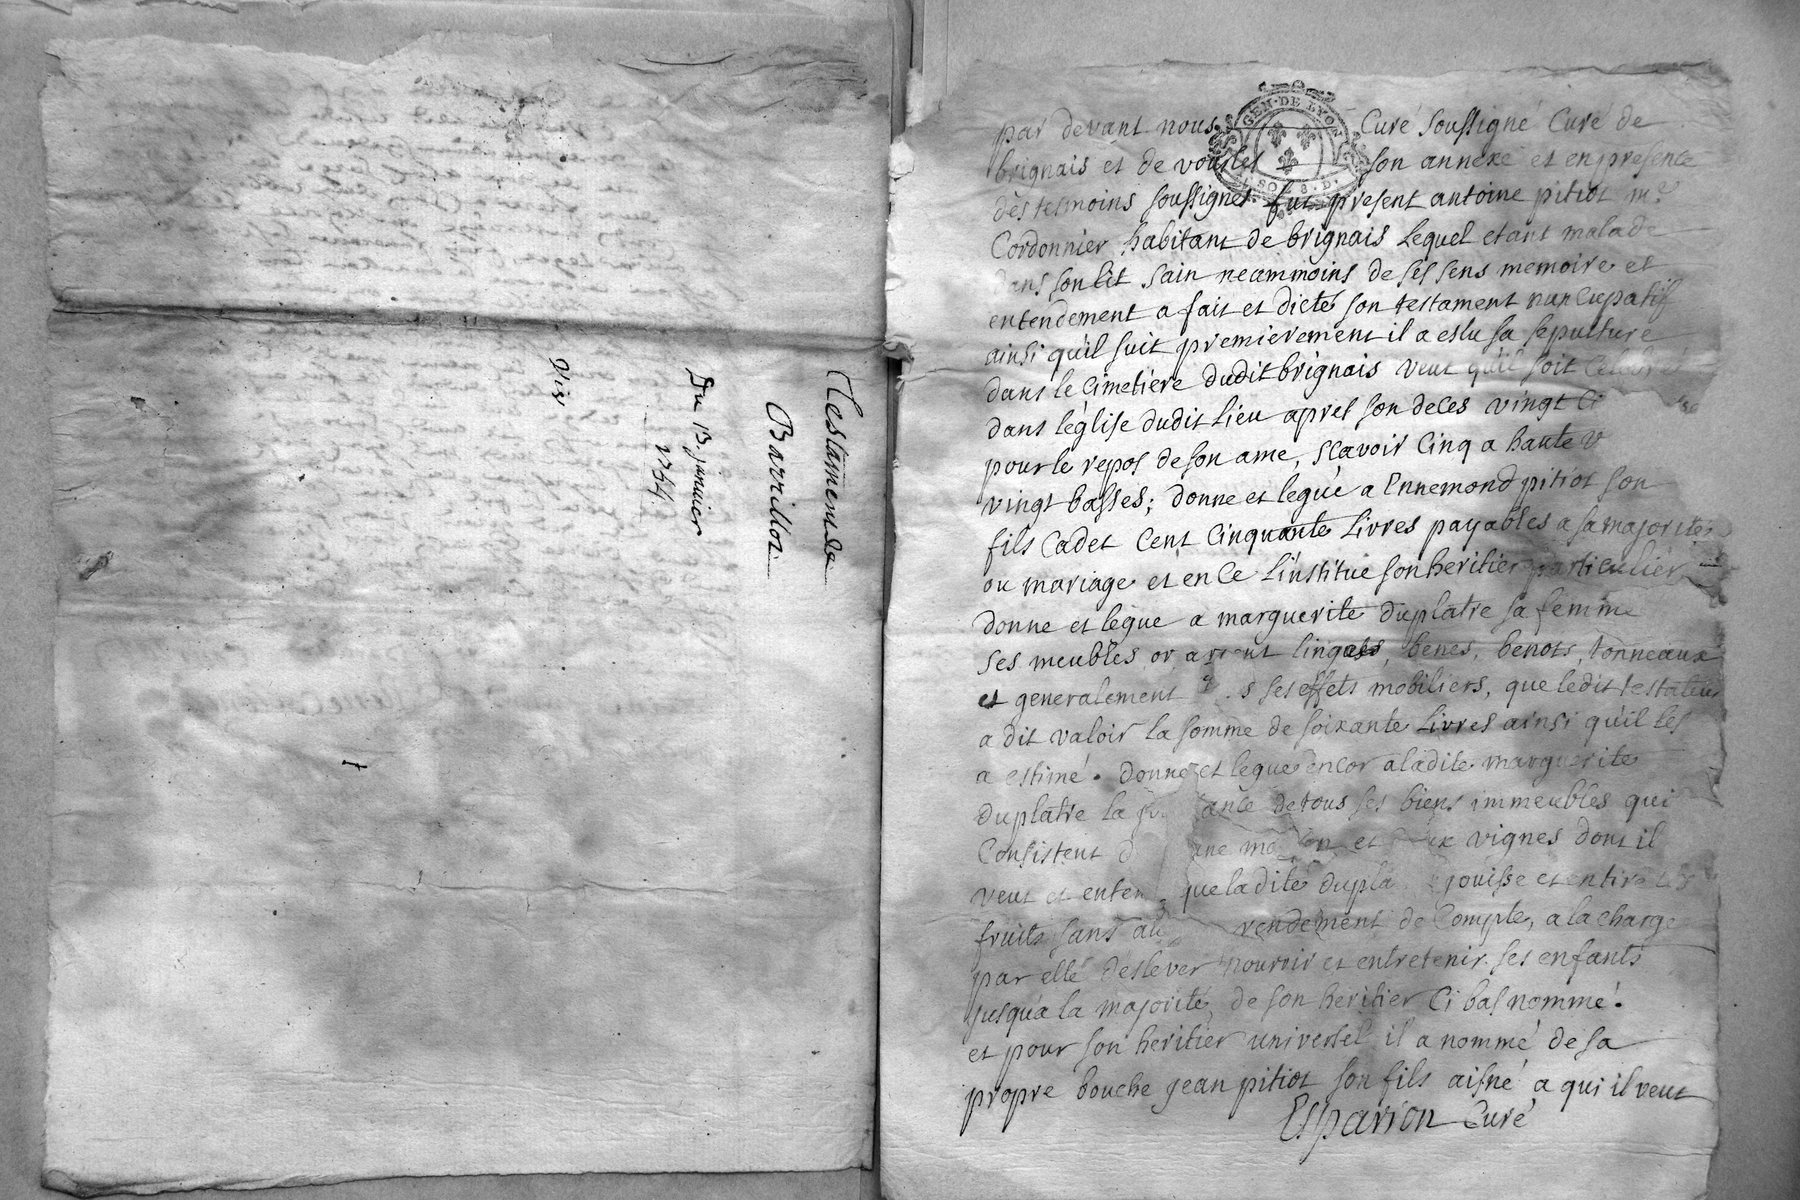 Testament de
Barrillot
Du 13 janvier
1734
Vis
GEN·DE LYON
SOL 8·D·
par devant nous Curé soussigné Curé de
brignais et de vourles son annexe et en presence
des tesmoins soussignes fut present antoine pitiot me
Cordonnier habitant de brignais lequel etant malade
dans son lit sain neammoins de ses sens memoire et
entendement a fait et dicté son testament nuncupatif
ainsi qu'il suit premierement il a eslu sa sepulture
dans le cimetiere dudit brignais veut qu'il soit celebré
dans l'église dudit lieu apres son deces vingt ci
pour le repos de son ame, scavoir cinq a haute v
vingt basses; donne et legue a Ennemond pitiot son
fils cadet cent cinquante livres payables a sa majorité
ou mariage et en ce l'institue son heritier particulier
donne et legue a marguerite duplatre sa femme
ses meubles or argent linges, benes, benots, tonneaux
et generalement s ses effets mobiliers, que ledit testateur
a dit valoir la somme de soixante livres ainsi qu'il les
a estimé. donne et legue encor a ladite marguerite
duplatre la jouissance de tous ses biens immeubles qui
consistent d une maison et deux vignes dont il
veut et entend que ladite duplatre jouisse et en tire les
fruits sans au rendement de compte, a la charge
par elle d'eslever nourrir et entretenir ses enfants
jusqu'a la majorité, de son heritier ci bas nommé.
et pour son heritier universel il a nommé de sa
propre bouche jean pitiot son fils aisné a qui il veut
Esparron curé